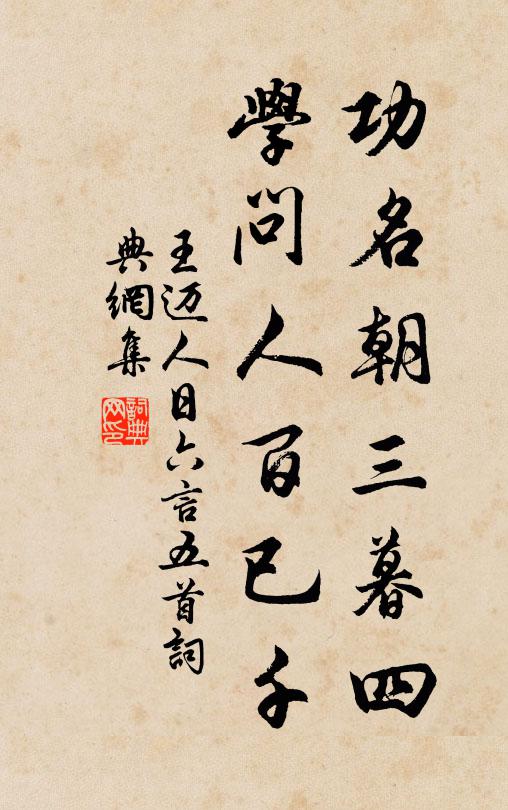 功名朝三暮四
學問人百已千
王迈人日六言五首詞
典網集
詞典網印